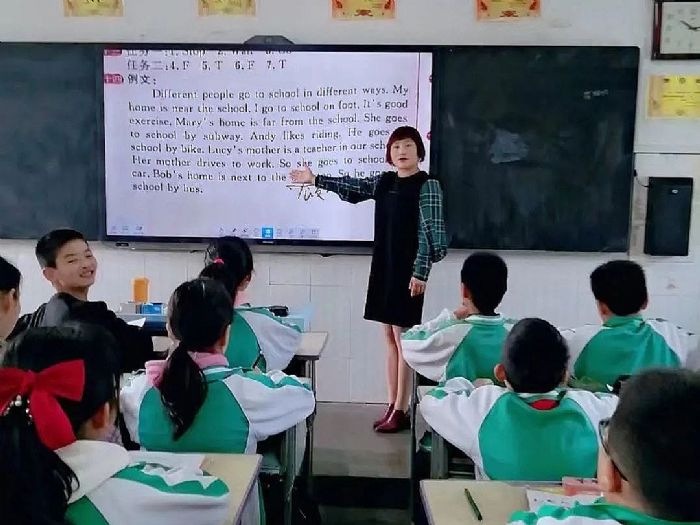 任务二:4. F 5. T 6. F 7. T
例文:
Different people go to school in different ways. My
home is near the school. I go to school on foot. It's good
exercise. Mary's home is far from the school. She goes
to school by subway. Andy likes riding. He goes
school by bike. Lucy's mother is a teacher in our scho
Her mother drives to work. So she goes to school
car. Bob's home is next to the
school by bus.